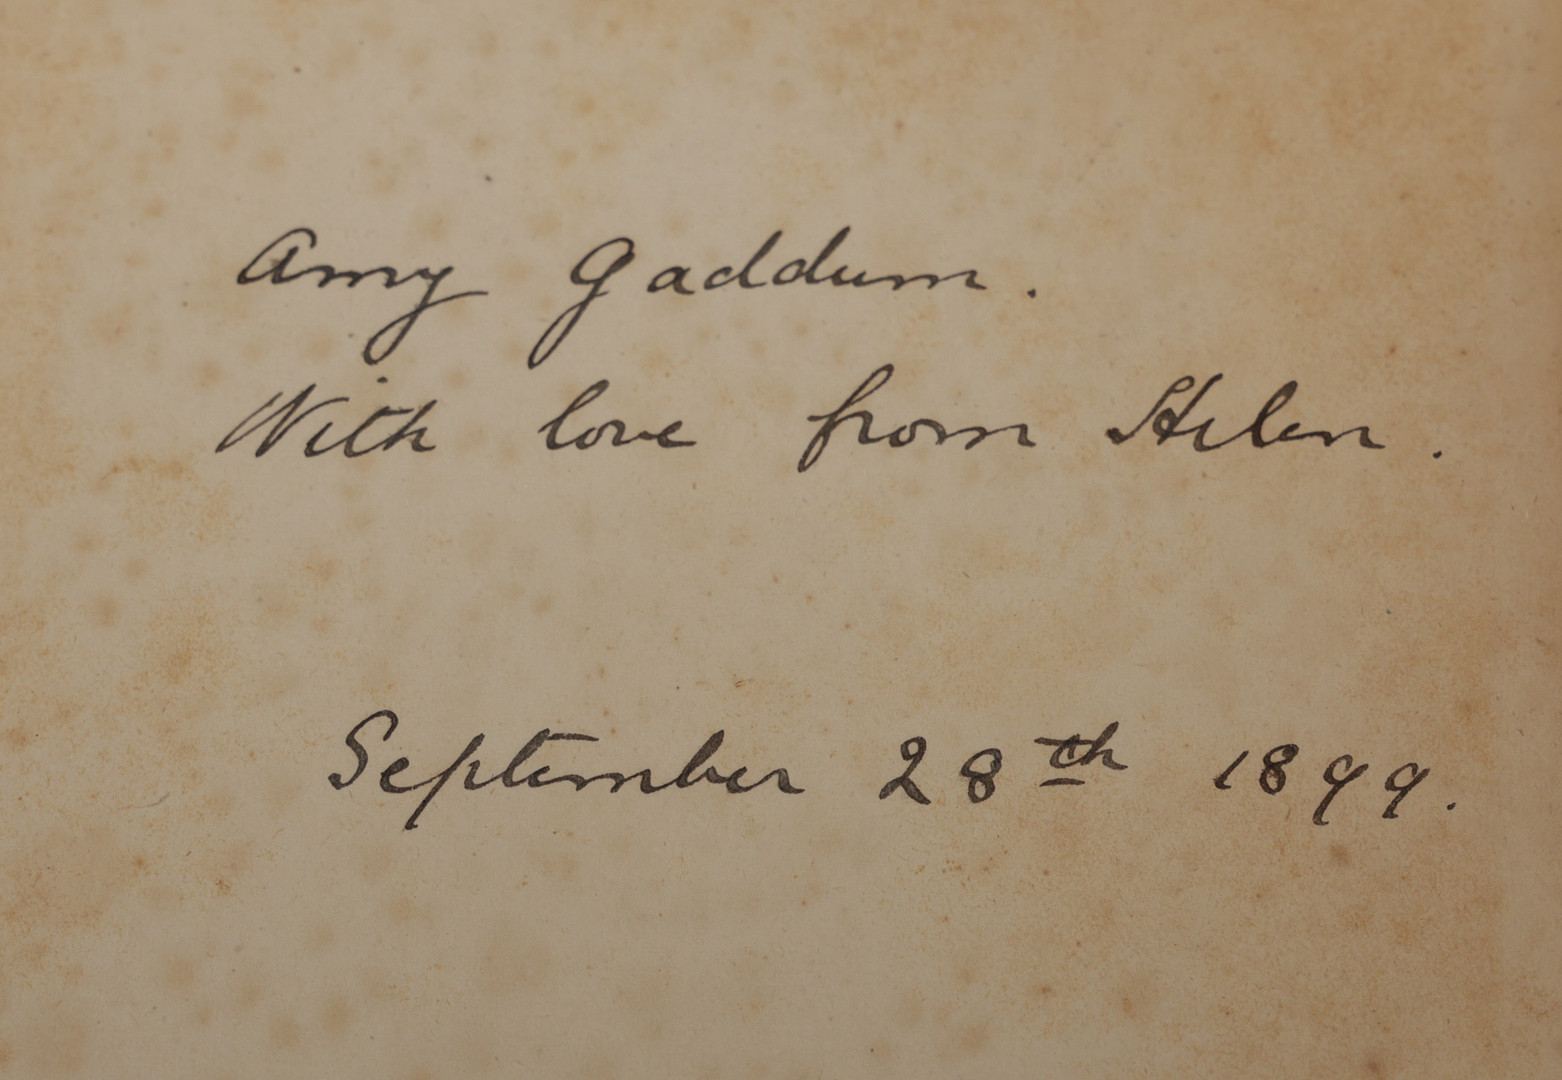 Amy Gaddum.
With love from Helen.
September 28th 1899.